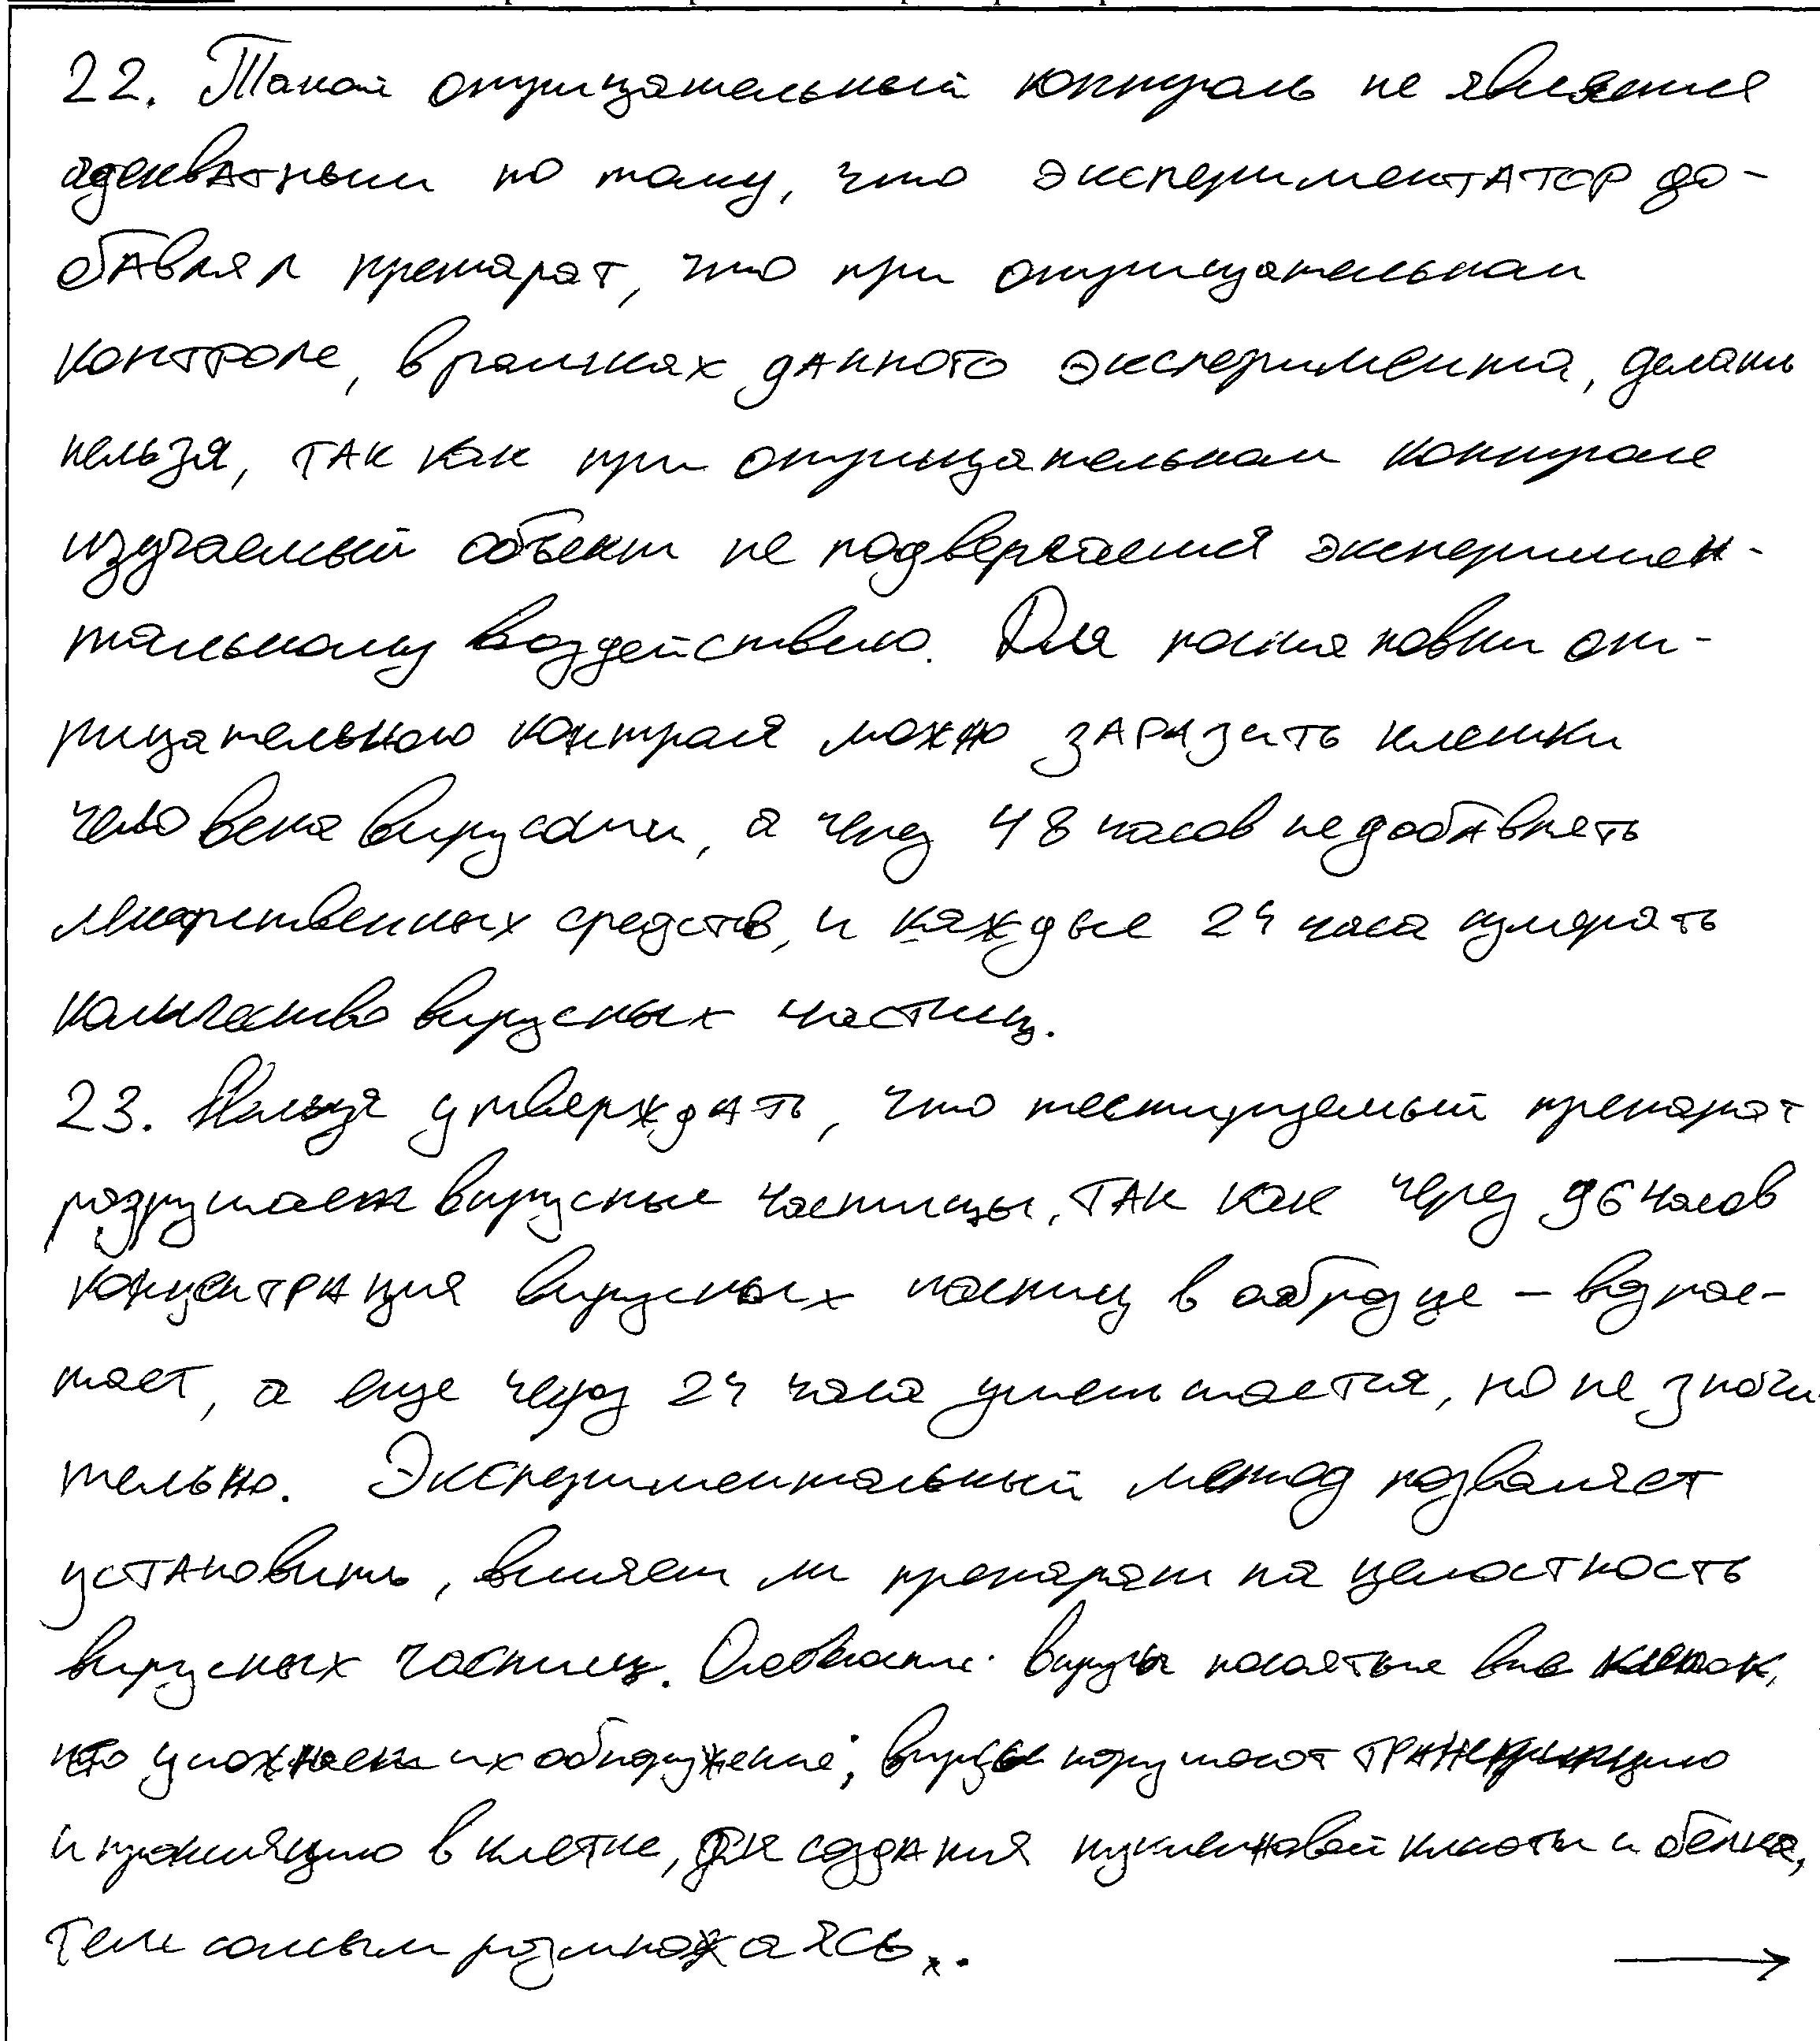 22. Такой отрицательный контроль не является
адекватным по тому, что экспериментатор до-
бавлял препарат, что при отрицательном
контроле, в рамках данного эксперимента, делать
нельзя, так как при отрицательном контроле
изучаемый объект не подвергается эксперимен-
тальному воздействию. Для постановки от-
рицательного контроля можно заразить клетки
человека вирусами, а через 48 часов не добавлять
лекарственных средств, и каждые 24 часа измерять
количество вирусных частиц.
23. Нельзя утверждать, что тестируемый препарат
разрушает вирусные частицы, так как через 96 часов
концентрация вирусных частиц в образце – возрас-
тает, а еще через 24 часа уменьшается, но не значи
тельно. Экспериментальный метод позволяет
установить, влияет ли препарат на целостность
вирусных частиц. вирусы вне клеток,
что усложняет их обнаружение; вирусы нарушают транскрипцию
и трансляцию в клетке, для создания нуклеиновой кислоты и белка,
тем самым размножаясь..
→